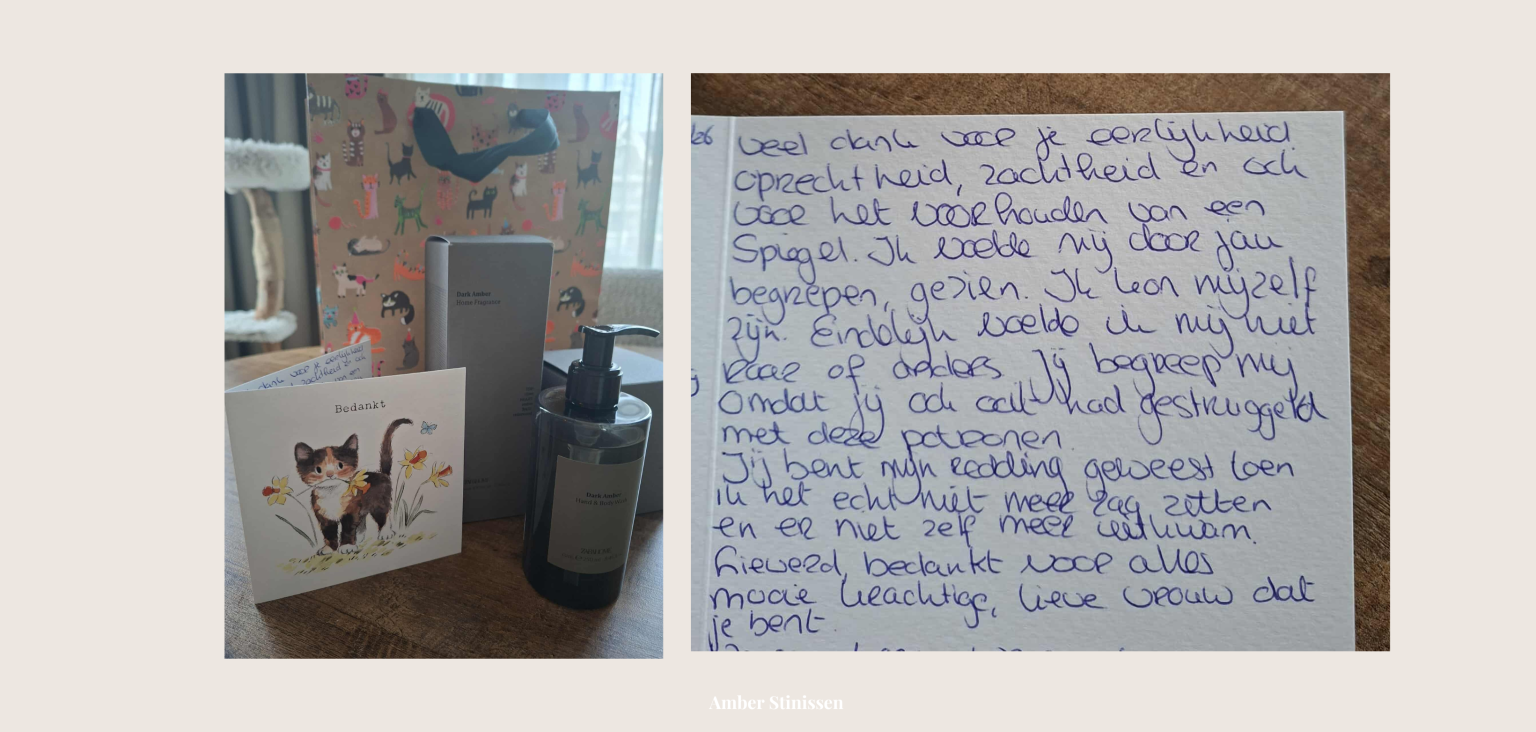 Dark Amber
Home Fragrance
Bedankt
Dark Amber
Hand & Body Wash
veel dank voor je eerlijkheid
oprechtheid, zachtheid en ook
voor het voorhouden van een
Spiegel. Ik voelde mij door jou
begrepen, gezien. Ik kon mijzelf
zijn. Eindelijk voelde ik mij niet
raar of anders. Jij begreep mij
Omdat jij ook ooit had gestruggeld
met deze patronen.
Jij bent mijn redding geweest toen
ik het echt niet meer zag zitten
en er niet zelf meer uitkwam.
Lieverd, bedankt voor alles
mooie krachtige, lieve vrouw dat
je bent.
Amber Stinissen